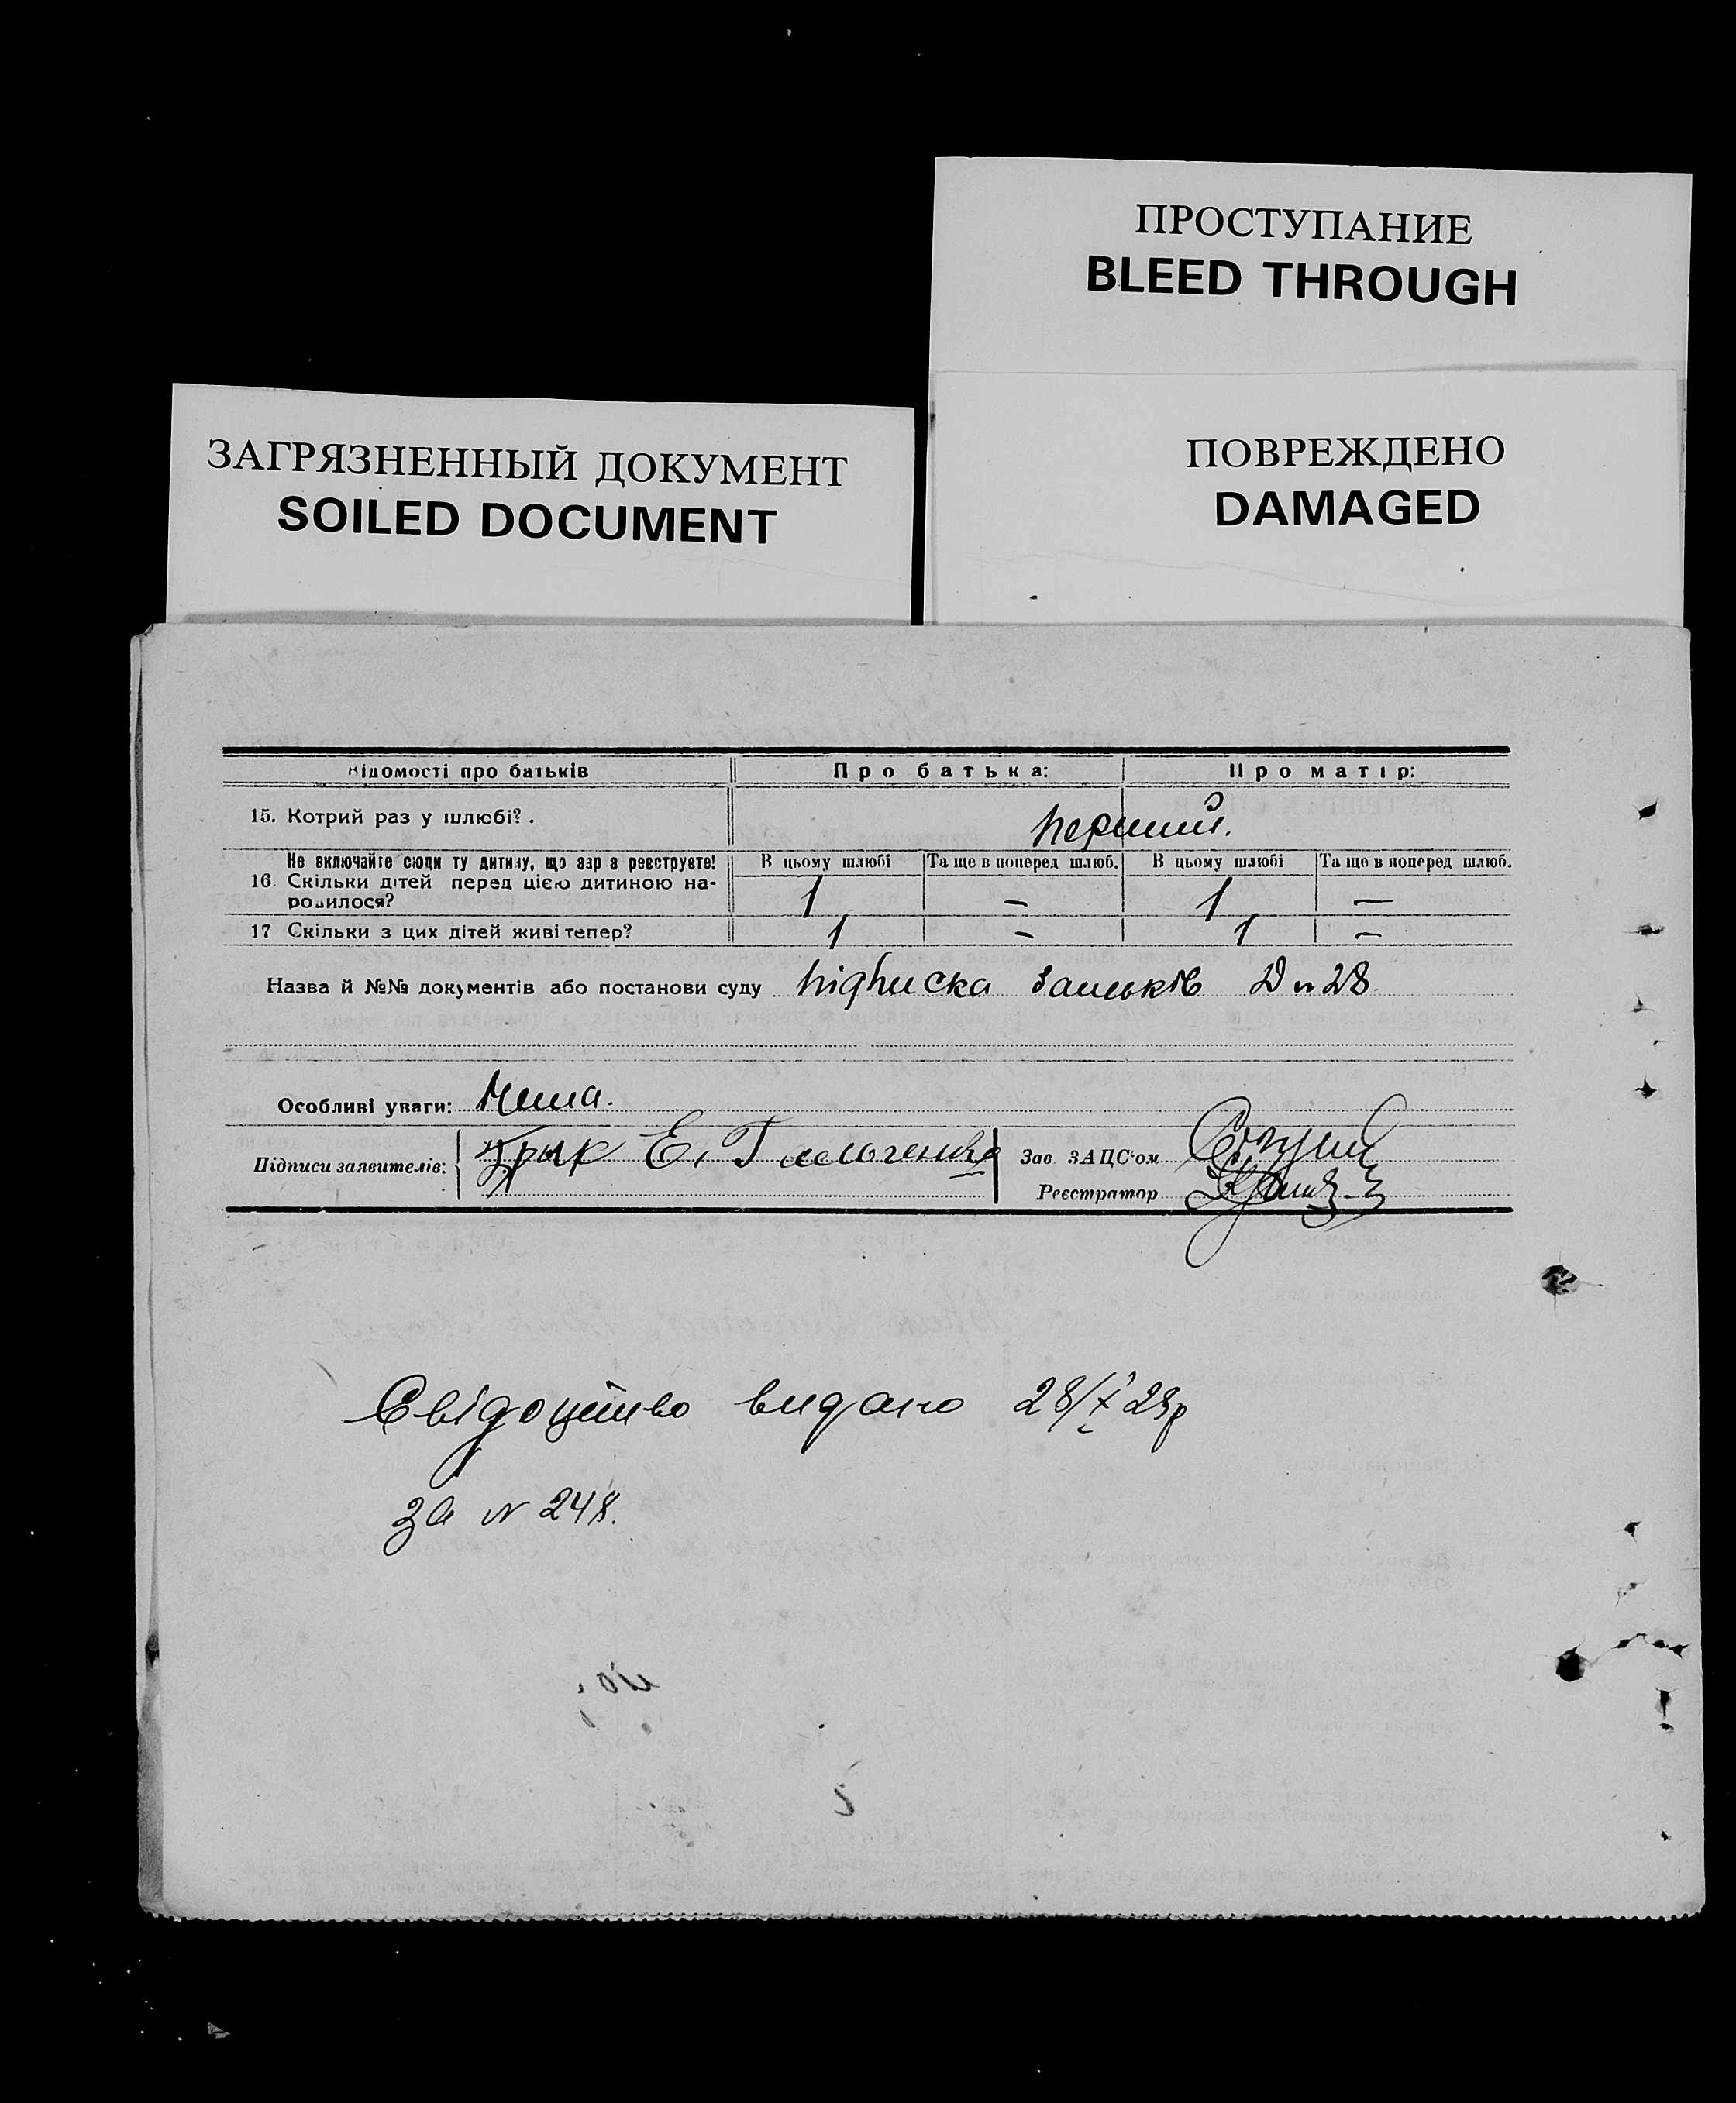 ПРОСТУПАНИЕ
BLEED THROUGH
ЗАГРЯЗНЕННЫЙ ДОКУМЕНТ
SOILED DOCUMENT
ПОВРЕЖДЕНО
DAMAGED
Відомості про батьків Про батька: Про матір:
15. Котрий раз у шлюбі? . перший.
Не включайте сюди ту дитину, що зараз реєструєте! В цьому шлюбі Та ще в поперед шлюб. В цьому шлюбі Та ще в поперед шлюб.
16. Скільки дітей перед цією дитиною на-
родилося? 1 — 1 —
17 Скільки з цих дітей живі тепер? 1 — 1 —
Назва й №№ документів або постанови суду підписка батьків № 28
Особливі уваги: Нема.
Підписи заявителів: Е. Зав. ЗАЦС'ом
Реєстратор
Свідоцтво видано 28/X 28р
за № 248.